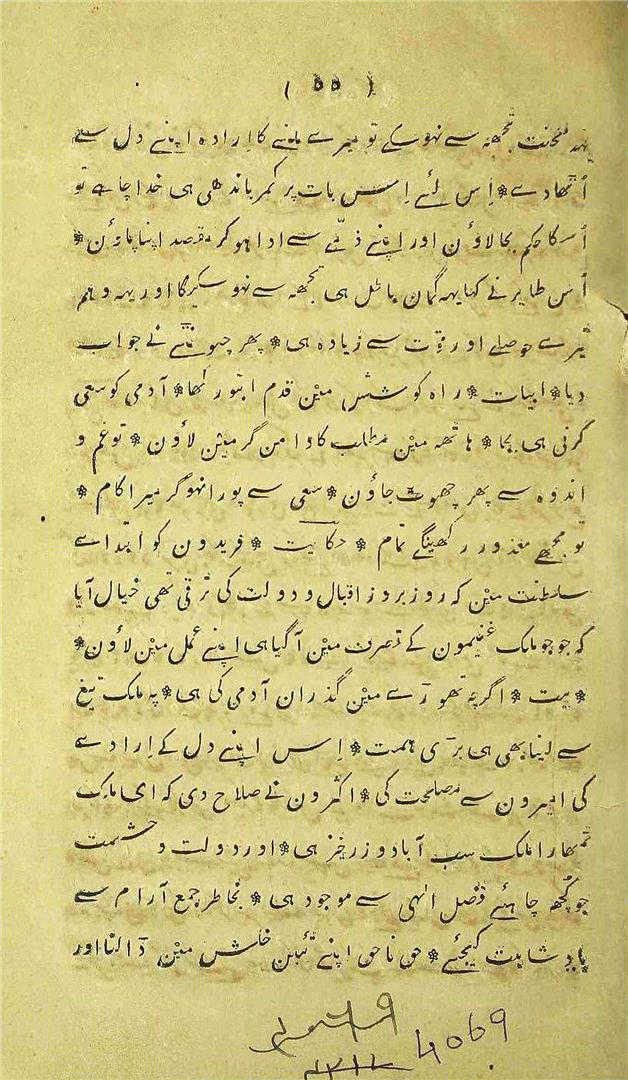 ( ۵۵ )
یہہ محنت تجھہ سے نہوسکے تو میرے ملنے کا اِرادہ اپنے دل سے
اُٹھادے * اِس لئے اِس بات پر کمر باندھی ہی خدا چاہے تو
اُسکا حکم بجالاؤن اور اپنے ذمّے سے ادا ہوکر مقصد اپنا پاؤن *
اُس طایر نے کہا یہہ گمان باطل ہی تجھہ سے نہوسکیگا اور یہہ وہم
تیرے حوصلے اور قوّت سے زیادہ ہی * پھر چیونٹی نے جواب
دیا * ابیات * راہ کوشش مین قدم ابتو رکھا * آدمی کو سعی
کرنی ہی بجا * ہاتھہ مین مطلب کا دامن گر مین لاؤن * تو غم و
اندوہ سے پھر چھوٹ جاؤن * سعی سے پورا نہو گر میرا کام *
تو مجھے معذور رکھینگے تمام * حکایت * فریدون کو ابتداے
سلطنت مین کہ روز بروز اقبال و دولت کی ترقی تھی خیال آیا
کہ جو جو ملک غنیمون کے تصرف مین آگیا ہی اپنے عمل مین لاؤن *
* بیت * اگرچہ تھوڑے مین گذران آدمی کی ہی * پہ ملک تیغ
سے لینا بھی ہی بڑی ہمت * اِس اپنے دل کے اِرادے
کی امیرون سے مصلحت کی * اکثرون نے صلاح دی کہ ای ملک
تمھارا ملک سب آباد و زرخیز ہی * اور دولت و حشمت
جو کُچھہ چاہئے فضل الٰہی سے موجود ہی * بخاطر جمع آرام سے
پادشاہت کیجئے * حق ناحق اپنے تئین خلش مین ڈالنا اور
4069